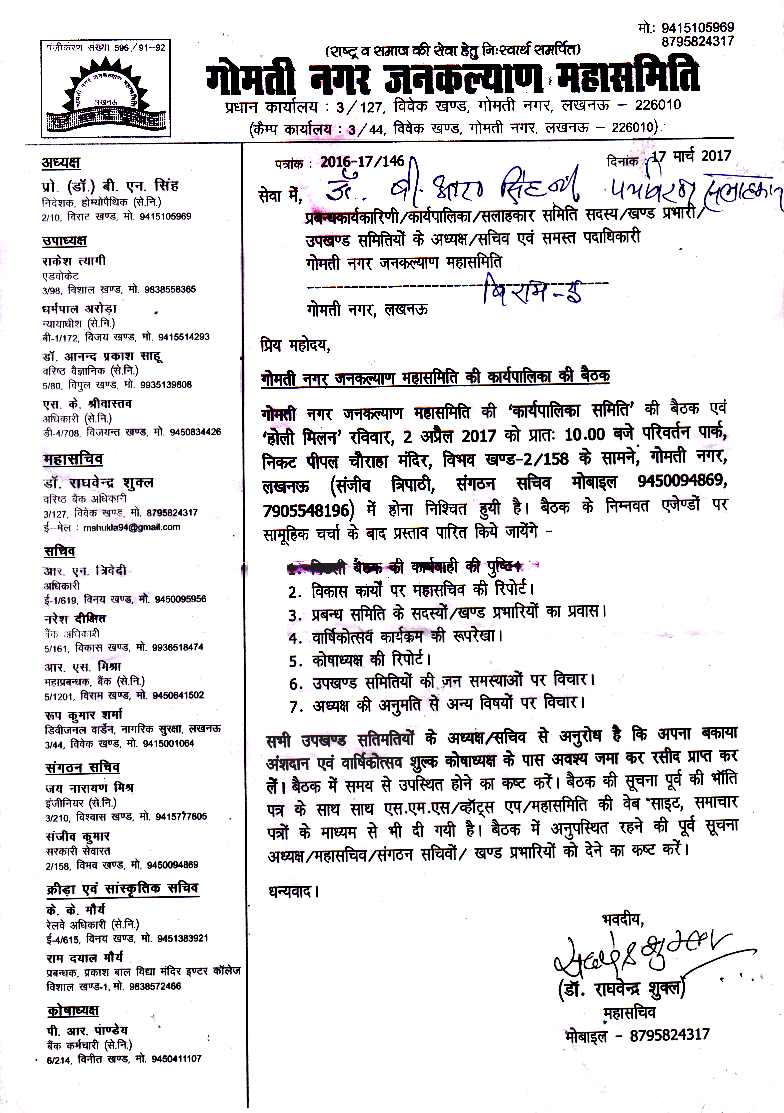 मो.: 9415105969
8795824317
पंजीकरण संख्या 596/91-92
गोमती नगर जनकल्याण महासमिति
लखनऊ
(राष्ट्र व समाज की सेवा हेतु निःस्वार्थ समर्पित)
गोमती नगर जनकल्याण महासमिति
प्रधान कार्यालय : 3/127, विवेक खण्ड, गोमती नगर, लखनऊ – 226010
(कैम्प कार्यालय : 3/44, विवेक खण्ड, गोमती नगर, लखनऊ – 226010)
अध्यक्ष
प्रो. (डॉ.) बी. एन. सिंह
निदेशक, होम्योपैथिक (से.नि.)
2/10, विराट खण्ड, मो. 9415105969
उपाध्यक्ष
राकेश त्यागी
एडवोकेट
3/98, विशाल खण्ड, मो. 9838558365
धर्मपाल अरोड़ा
न्यायाधीश (से.नि.)
बी-1/172, विजय खण्ड, मो. 9415514293
डॉ. आनन्द प्रकाश साहू
वरिष्ठ वैज्ञानिक (से.नि.)
5/80, विपुल खण्ड, मो. 9935139808
एस. के. श्रीवास्तव
अधिकारी (से.नि.)
डी-4/708, विजयन्त खण्ड, मो. 9450834426
महासचिव
डॉ. राघवेन्द्र शुक्ल
वरिष्ठ बैंक अधिकारी
3/127, विवेक खण्ड, मो. 8795824317
ई-मेल : mshukla94@gmail.com
सचिव
आर. एन. त्रिवेदी
अधिकारी
ई-1/619, विनय खण्ड, मो. 9450095956
नरेश दीक्षित
बैंक अधिकारी
5/161, विकास खण्ड, मो. 9936518474
आर. एस. मिश्रा
महाप्रबन्धक, बैंक (से.नि.)
5/1201, विराम खण्ड, मो. 9450641502
रूप कुमार शर्मा
डिवीजनल वार्डेन, नागरिक सुरक्षा, लखनऊ
3/44, विवेक खण्ड, मो. 9415001064
संगठन सचिव
जय नारायण मिश्र
इंजीनियर (से.नि.)
3/210, विश्वास खण्ड, मो. 9415777605
संजीव कुमार
सरकारी सेवारत
2/158, विभव खण्ड, मो. 9450094869
क्रीड़ा एवं सांस्कृतिक सचिव
के. के. मौर्य
रेलवे अधिकारी (से.नि.)
ई-4/615, विनय खण्ड, मो. 9451383921
राम दयाल मौर्य
प्रबन्धक, प्रकाश बाल विद्या मंदिर इण्टर कॉलेज
विशाल खण्ड-1, मो. 9838572466
कोषाध्यक्ष
पी. आर. पाण्डेय
बैंक कर्मचारी (से.नि.)
6/214, विनीत खण्ड, मो. 9450411107
पत्रांक : 2016-17/146
दिनांक 17 मार्च 2017
सेवा में, डॉ. बी. आर. सिंह पर्यावरण सलाहकार
प्रबन्धकार्यकारिणी/कार्यपालिका/सलाहकार समिति सदस्य/खण्ड प्रभारी/
उपखण्ड समितियों के अध्यक्ष/सचिव एवं समस्त पदाधिकारी
गोमती नगर जनकल्याण महासमिति
विराम-5
गोमती नगर, लखनऊ
प्रिय महोदय,
गोमती नगर जनकल्याण महासमिति की कार्यपालिका की बैठक
गोमती नगर जनकल्याण महासमिति की 'कार्यपालिका समिति' की बैठक एवं
'होली मिलन' रविवार, 2 अप्रैल 2017 को प्रातः 10.00 बजे परिवर्तन पार्क,
निकट पीपल चौराहा मंदिर, विभव खण्ड-2/158 के सामने, गोमती नगर,
लखनऊ (संजीव त्रिपाठी, संगठन सचिव मोबाइल 9450094869,
7905548196) में होना निश्चित हुयी है। बैठक के निम्नवत एजेण्डों पर
सामूहिक चर्चा के बाद प्रस्ताव पारित किये जायेंगे –
1. पिछली बैठक की कार्यवाही की पुष्टि।
2. विकास कार्यों पर महासचिव की रिपोर्ट।
3. प्रबन्ध समिति के सदस्यों/खण्ड प्रभारियों का प्रवास।
4. वार्षिकोत्सव कार्यक्रम की रूपरेखा।
5. कोषाध्यक्ष की रिपोर्ट।
6. उपखण्ड समितियों की जन समस्याओं पर विचार।
7. अध्यक्ष की अनुमति से अन्य विषयों पर विचार।
सभी उपखण्ड सतिमतियों के अध्यक्ष/सचिव से अनुरोध है कि अपना बकाया
अंशदान एवं वार्षिकोत्सव शुल्क कोषाध्यक्ष के पास अवश्य जमा कर रसीद प्राप्त कर
लें। बैठक में समय से उपस्थित होने का कष्ट करें। बैठक की सूचना पूर्व की भाँति
पत्र के साथ साथ एस.एम.एस/व्हॉट्स एप/महासमिति की वेब साइट, समाचार
पत्रों के माध्यम से भी दी गयी है। बैठक में अनुपस्थित रहने की पूर्व सूचना
अध्यक्ष/महासचिव/संगठन सचिवों/ खण्ड प्रभारियों को देने का कष्ट करें।
धन्यवाद।
भवदीय,
(डॉ. राघवेन्द्र शुक्ल)
महासचिव
मोबाइल - 8795824317